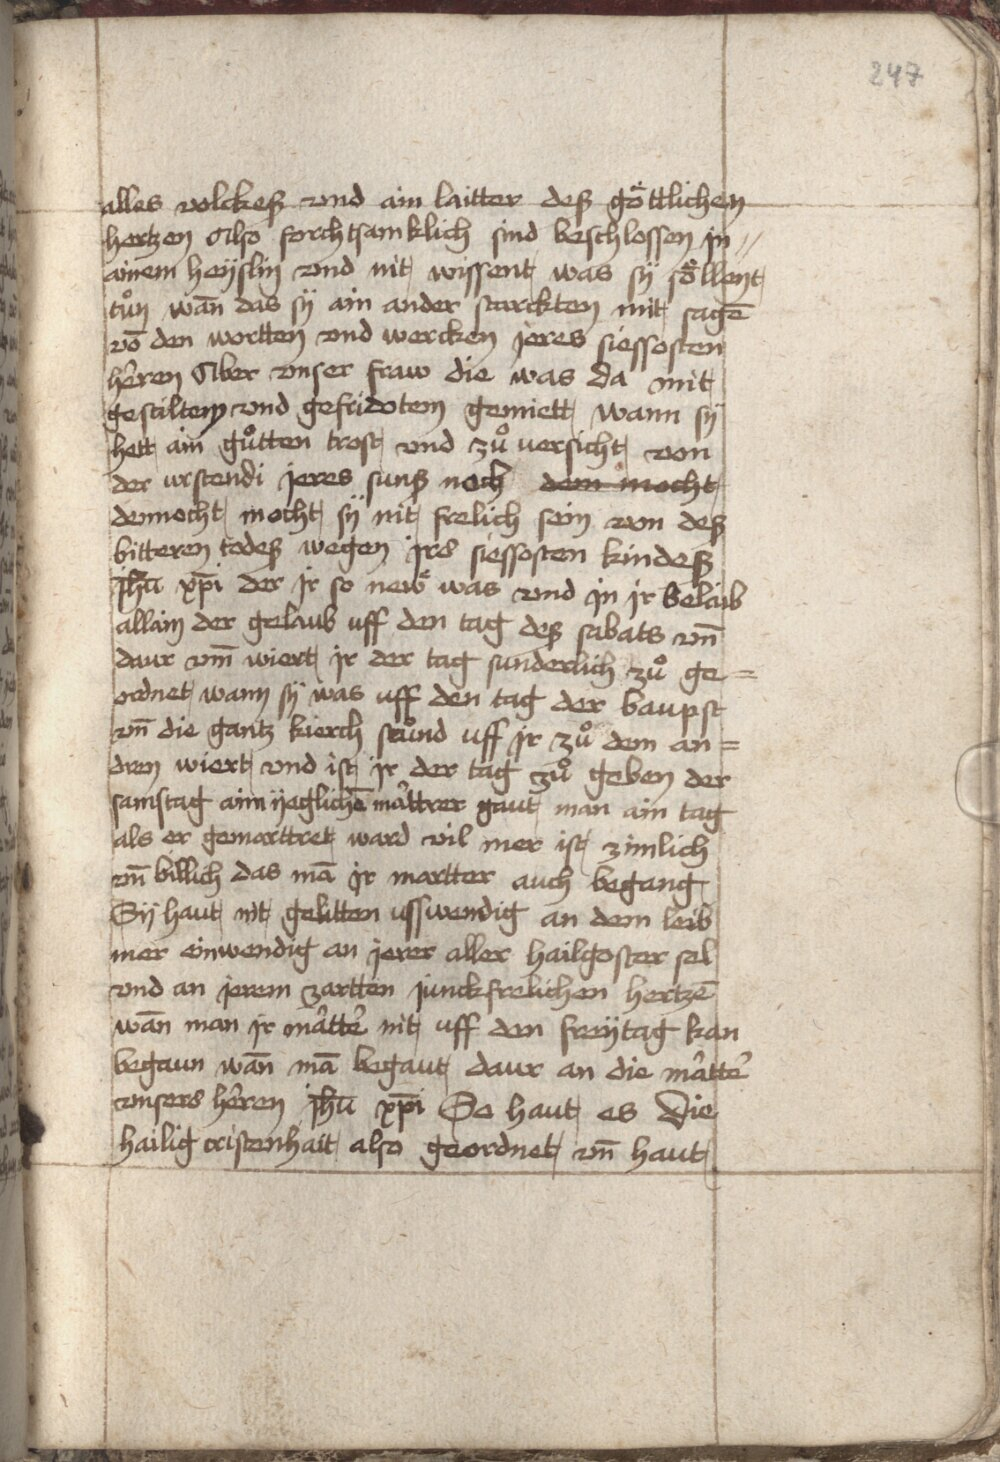 247
alles volckeß vnd ain laitter deß gőttlichen
hertzen Also forchtsamklich sind beschlossen in //
ainem heyslin vnd nit wissent was sÿ sőllent
tůn wañ das sÿ ain ander starckten mit sagē
võ den wortten vnd wercken jeres siessosten
herren Aber vnser fraw die was da mit
gestiltem vnd gefridotem gemiett wann sÿ
hett ain gůtten trost vnd zů versicht von
der vrstendi jeres sunß noch dem mocht
dennocht mocht sÿ nit frelich sein von deß
bitteren todeß wegen jrs siessosten kindeß
jhū xp̄i der jr so new was vnd in jr belaib
allain der gelaub uff den tag deß sabats vn̄
daur vm̄ wiert jr der tag sunderlich zů ge=
ordnet wann sÿ was uff den tag der baupst
vn̄ die gantz kierch stůnd uff jr zů dem an=
dren wiert vnd ist jr der tag zů geben der
samstag aim yeglichē mattrer gaut man ain tag
als er gemarttret ward vil mer ist zimlich
vn̄ billich das mā jr martter auch begang
Sÿ haut nit gelitten usswendig an dem leib
mer einwendig an jerer aller hailgoster sel
vnd an jerem zartten junckfrelichen hertzē
wañ man jr matter nit uff den freÿtag kan
begaun wañ mā begaut daur an die matter
vnsers herren jhū xp̄i So haut es Die
hailig cristenhait also geordnet vn̄ haut